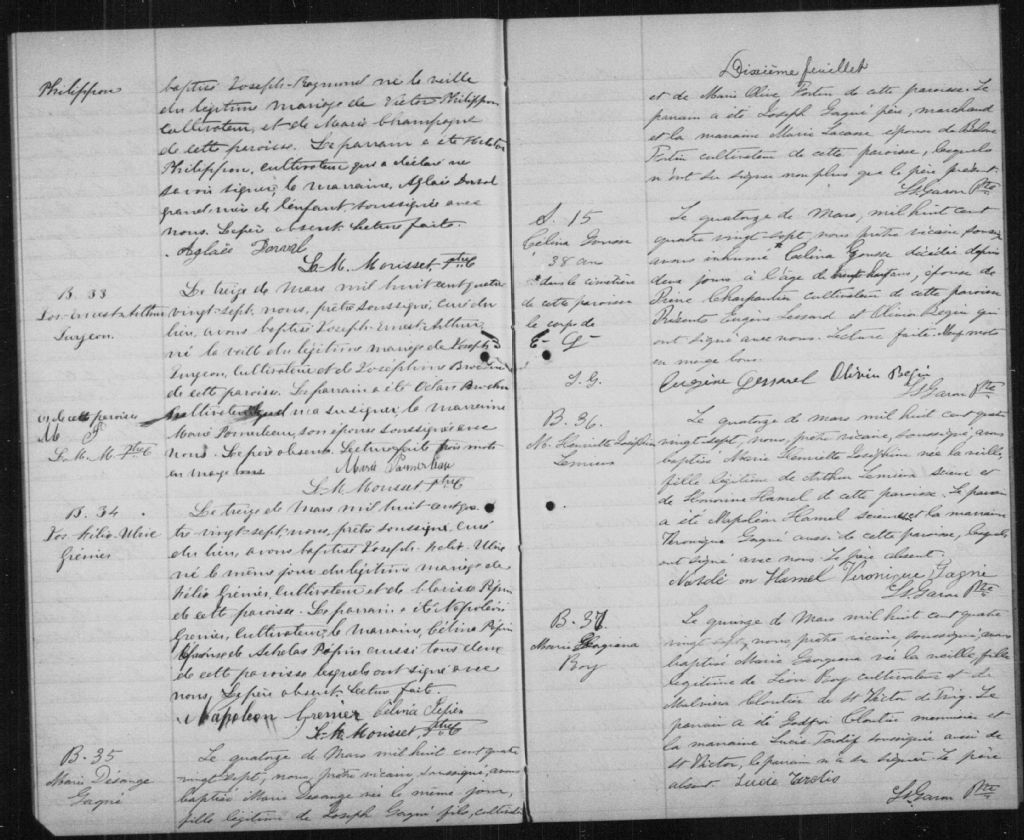 Philippon
baptisé Joseph-Raymond né la veille
du légitime mariage de Victor Philippon
cultivateur, et de Marie Champagne
de cette paroisse. Le parrain a été
Philippon, cultivateur qui a déclaré ne
savoir signer, la marraine, Aglaë Dorval
grand-mère de l'enfant, soussignée avec
nous. Le père absent. Lecture faite.
Aglaës Dorval
L. M. Morisset Ptre C
B. 33
Jos-Ernest-Arthur
Turgeon.
Le treize de Mars mil huit cent quatre
vingt-sept, nous, prêtre soussigné, curé du
lieu, avons baptisé Joseph-Ernest-Arthur,
né la veille du légitime mariage de Joseph
Turgeon, Cultivateur et de Joséphine
de cette paroisse. Le parrain a été Octave
cultivateur qui n'a su signer, la marraine
Marie Pomerleau, son épouse soussignée avec
nous. Le père absent. Lecture faite trois mots
en marge bons
de cette paroisse
M P
L. M. M. Ptre C
Marie Pomerleau
L. M. Morisset Ptre C
B. 34
Jos-Hélie-Ulric
Grenier
Le treize de Mars mil huit cent qua
tre vingt-sept, nous, prêtre soussigné, curé
du lieu, avons baptisé Joseph-Hélie-Ulric
né le même jour du légitime mariage de
Hélie Grenier, Cultivateur et de Pépin
de cette paroisse. Le parrain a été Napoléon
Grenier, Cultivateur, la marraine, Célina Pépin
épouse de Pépin aussi tous deux
de cette paroisse lesquels ont signé avec
nous. Le père absent. Lecture faite.
Napoleon Grenier Célina Pepin
L. M. Morisset, Ptre C
B. 35
Marie Désange
Gagné
Le quatorze de Mars mil huit cent quatre
vingt-sept, nous, prêtre vicaire, soussigné, avons
baptisé Marie Desange née le même jour,
fille légitime de Joseph Gagné fils, cultivateur
Dixième feuillet
et de Marie Olive Fortin de cette paroisse. Le
parrain a été Joseph Gagné père, marchand
et la marraine Marie Lacasse épouse de
Fortin cultivateur de cette paroisse, lesquels
n'ont su signer non plus que le père présent.
Ls Garon Ptre
S. 15
Célina Gousse
38 ans
* dans le cimetière
de cette paroisse
le corps de
E. G.
L. G.
Le quatorze de Mars, mil huit cent
quatre vingt-sept, nous, prêtre vicaire, soussigné
avons inhumé * Célina Gousse décédée depuis
deux jours à l'âge de trente huit ans, épouse de
Charpentier cultivateur de cette paroisse
Présents Eugène Lessard et Olivier Bégin qui
ont signé avec nous. Lecture faite. mots
en marge bons.
Eugène Lessard Olivier Begin
Ls Garon Ptre
B. 36.
M. Henriette Joséphine
Lemieux
Le quatorze de mars mil huit cent quatre
vingt-sept, nous, prêtre vicaire, soussigné, avons
baptisé Marie Henriette Joséphine née la veille,
fille légitime de Arthur Lemieux et
de Honorine Hamel de cette paroisse. Le parrain
a été Napoléon Hamel et la marraine
Véronique Gagné aussi de cette paroisse, lesquels
ont signé avec nous. Le père absent.
Hamel Véronique Gagné
Ls Garon Ptre
B. 37.
Marie Georgiana
Roy
Le quinze de Mars mil huit cent quatre
vingt-sept, nous, prêtre vicaire, soussigné, avons
baptisé Marie Georgiana née la veille, fille
légitime de Léon Roy cultivateur et de
Malvina Cloutier de St Victor de Tring. Le
parrain a été Godfroi Cloutier menuisier et
la marraine Lucie Tardif soussignée aussi de
St Victor, le parrain n'a su signer. Le père
absent. Lucie Tardif
Ls Garon Ptre